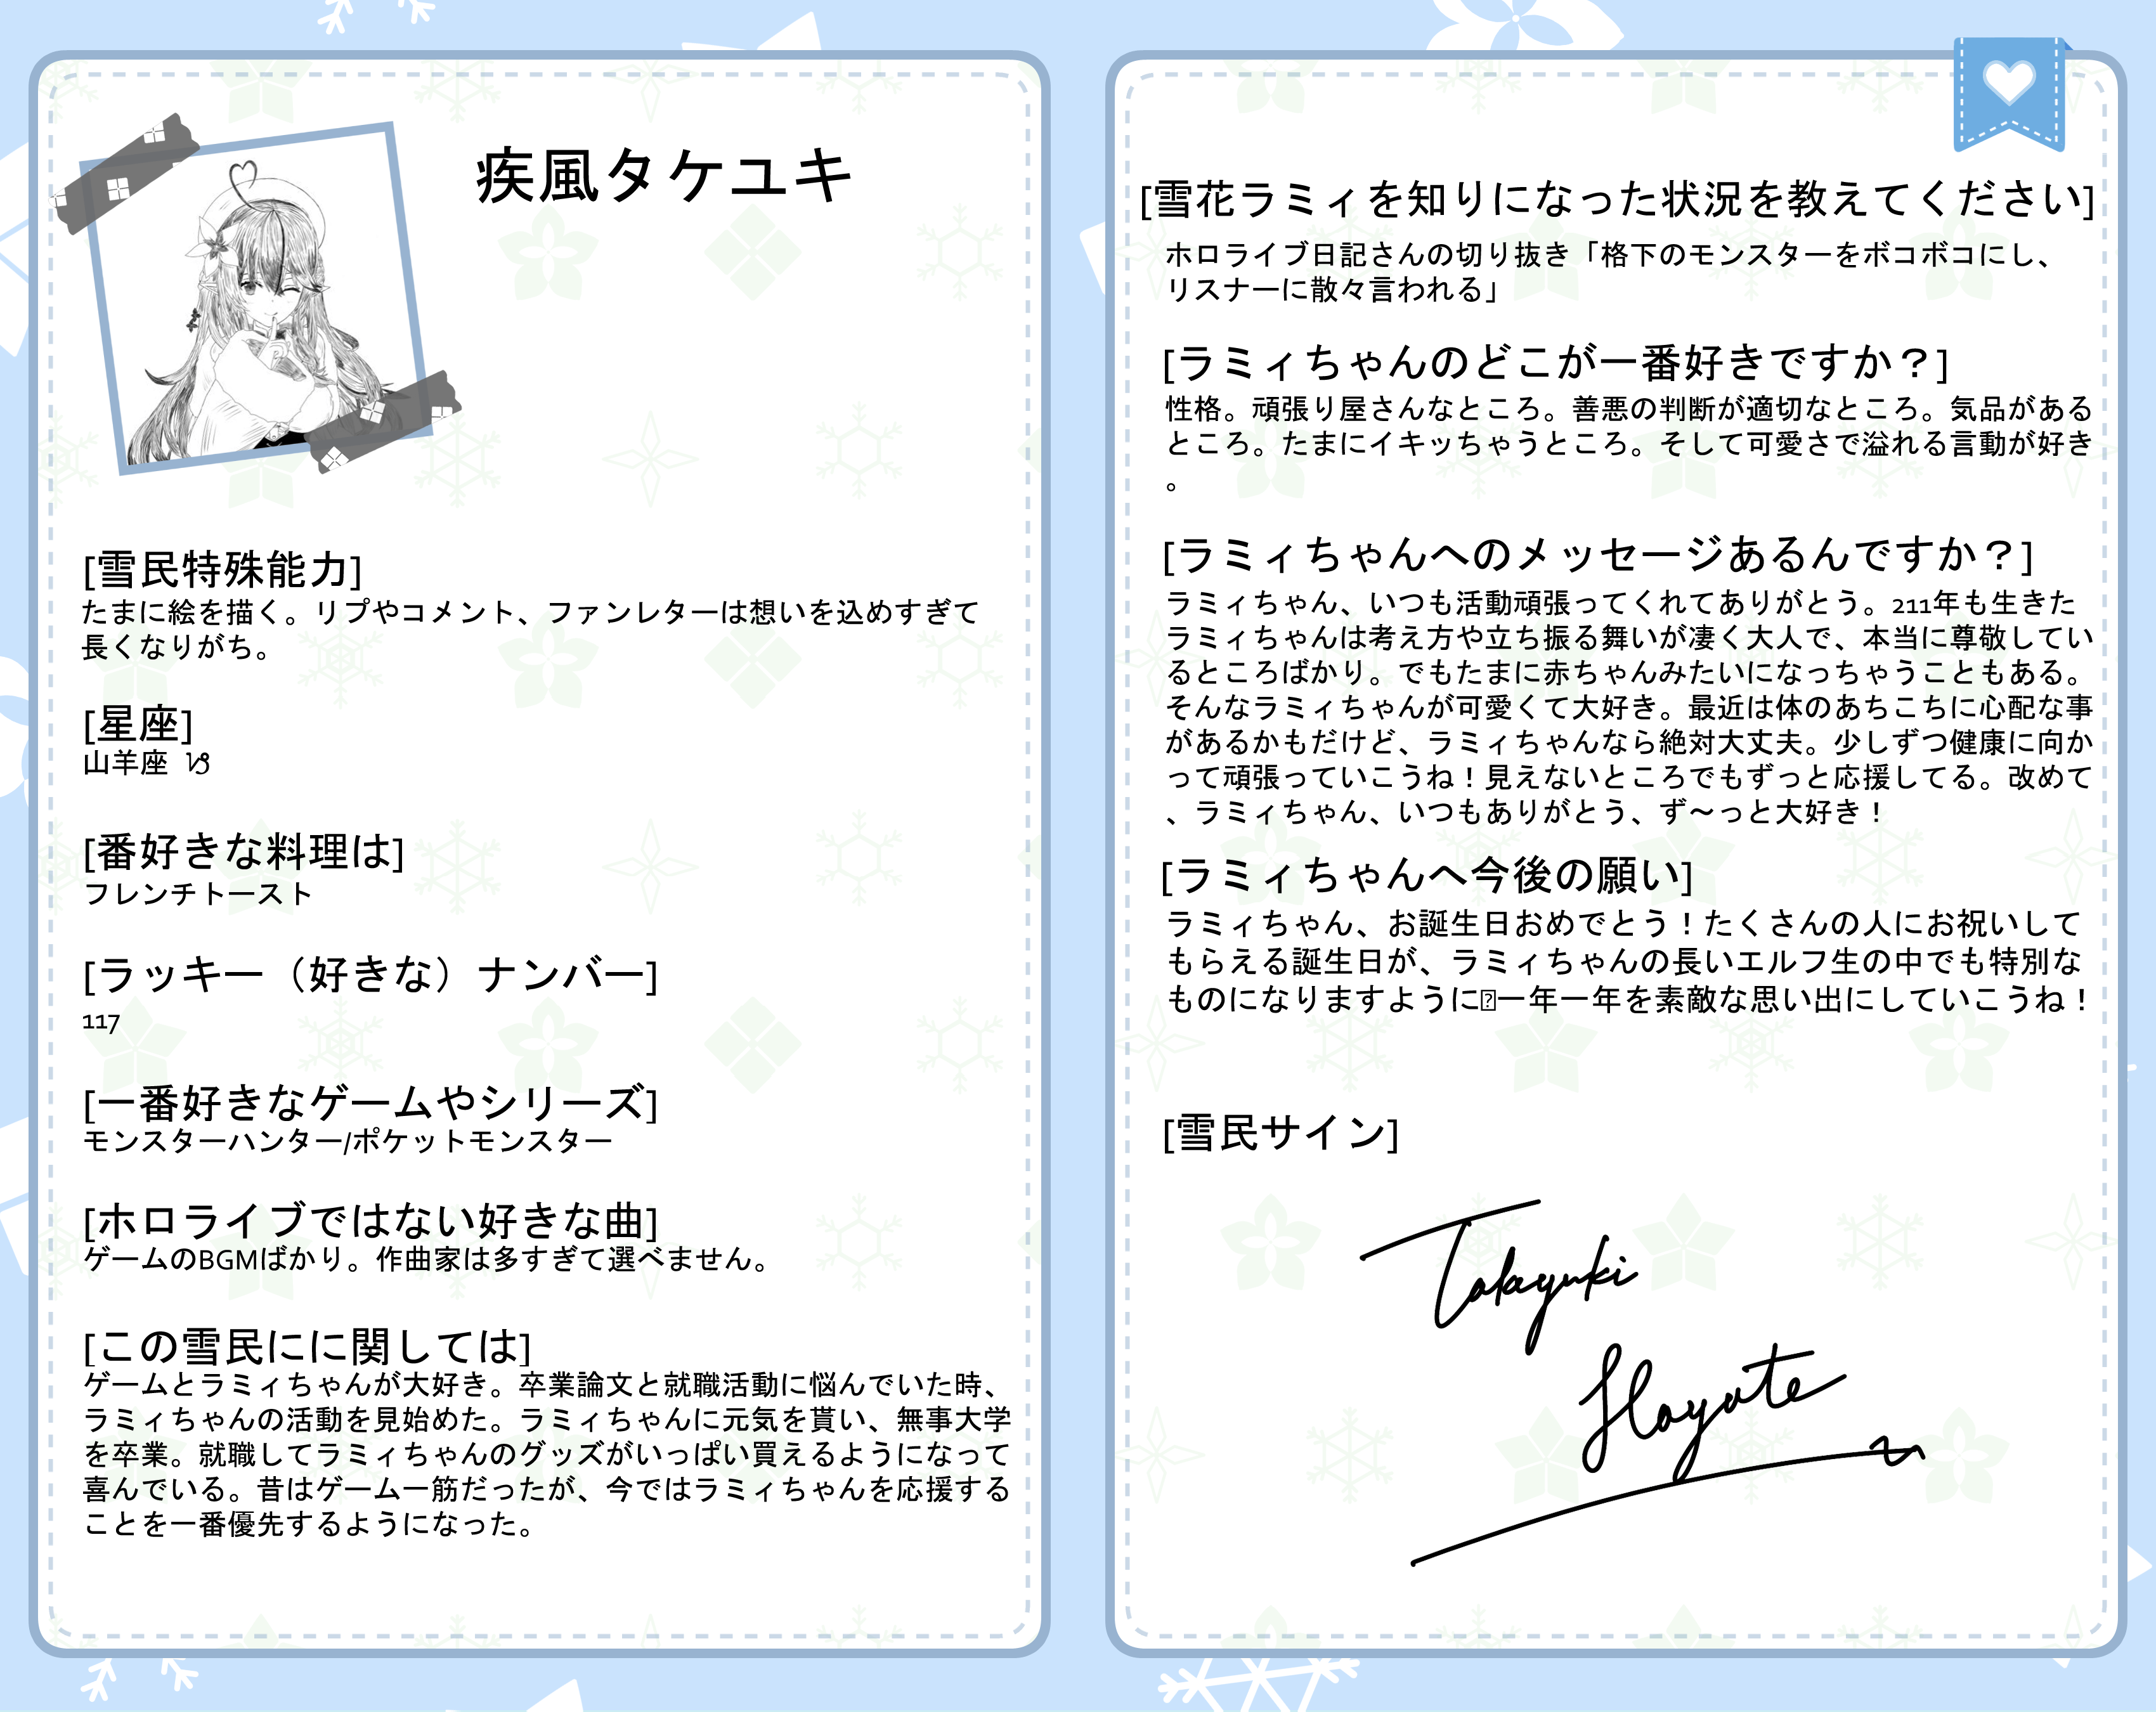 疾風タケユキ
[雪民特殊能力]
たまに絵を描く。リプやコメント、ファンレターは想いを込めすぎて
長くなりがち。
[星座]
山羊座 ♑
[番好きな料理は]
フレンチトースト
[ラッキー（好きな）ナンバー]
117
[一番好きなゲームやシリーズ]
モンスターハンター/ポケットモンスター
[ホロライブではない好きな曲]
ゲームのBGMばかり。作曲家は多すぎて選べません。
[この雪民にに関しては]
ゲームとラミィちゃんが大好き。卒業論文と就職活動に悩んでいた時、
ラミィちゃんの活動を見始めた。ラミィちゃんに元気を貰い、無事大学
を卒業。就職してラミィちゃんのグッズがいっぱい買えるようになって
喜んでいる。昔はゲーム一筋だったが、今ではラミィちゃんを応援する
ことを一番優先するようになった。
[雪花ラミィを知りになった状況を教えてください]
ホロライブ日記さんの切り抜き「格下のモンスターをボコボコにし、
リスナーに散々言われる」
[ラミィちゃんのどこが一番好きですか？]
性格。頑張り屋さんなところ。善悪の判断が適切なところ。気品がある
ところ。たまにイキッちゃうところ。そして可愛さで溢れる言動が好き
。
[ラミィちゃんへのメッセージあるんですか？]
ラミィちゃん、いつも活動頑張ってくれてありがとう。211年も生きた
ラミィちゃんは考え方や立ち振る舞いが凄く大人で、本当に尊敬してい
るところばかり。でもたまに赤ちゃんみたいになっちゃうこともある。
そんなラミィちゃんが可愛くて大好き。最近は体のあちこちに心配な事
があるかもだけど、ラミィちゃんなら絶対大丈夫。少しずつ健康に向か
って頑張っていこうね！見えないところでもずっと応援してる。改めて
、ラミィちゃん、いつもありがとう、ず〜っと大好き！
[ラミィちゃんへ今後の願い]
ラミィちゃん、お誕生日おめでとう！たくさんの人にお祝いして
もらえる誕生日が、ラミィちゃんの長いエルフ生の中でも特別な
ものになりますように⍰一年一年を素敵な思い出にしていこうね！
[雪民サイン]
Takayuki
Hayate